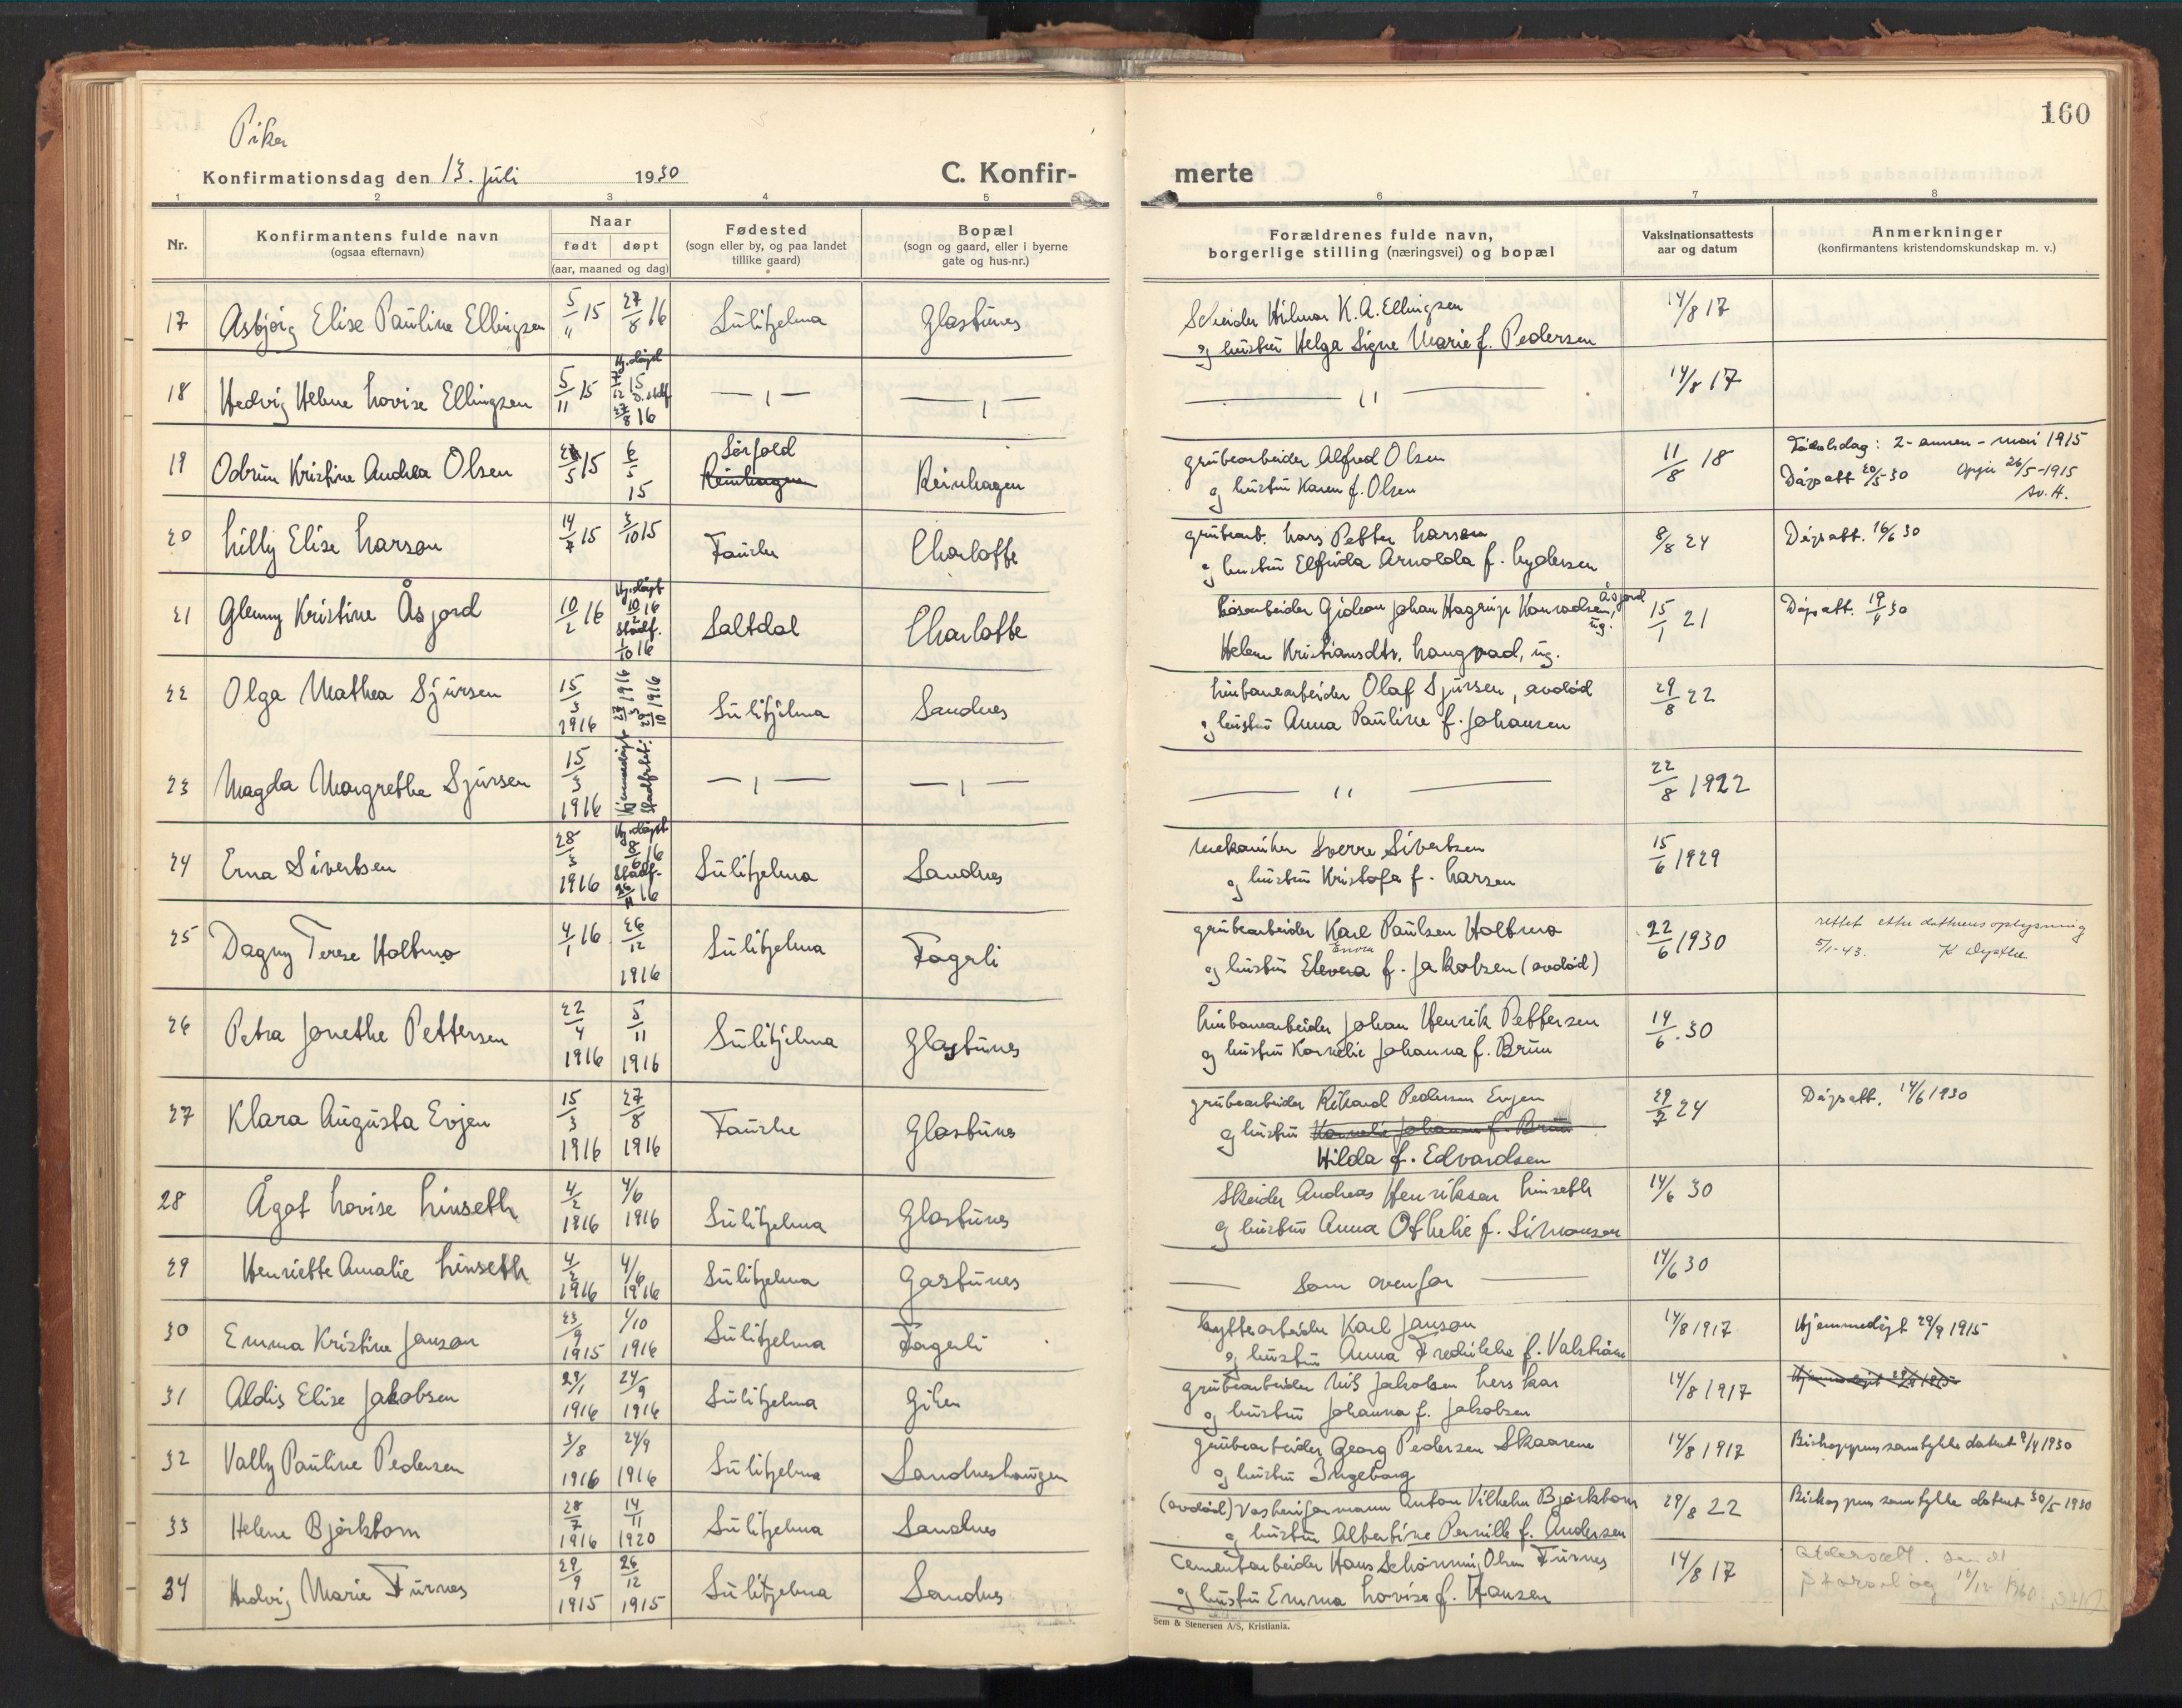 160
Piker
Konfirmationsdag den 13. juli 1930
C. Konfir-
merte
1 2 3 4 5 6 7 8
Nr.
Konfirmantens fulde navn
(ogsaa efternavn)
Naar
født døpt
(aar, maaned og dag)
Fødested
(sogn eller by, og paa landet
tillike gaard)
Bopæl
(sogn og gaard, eller i byerne
gate og hus-nr.)
Forældrenes fulde navn,
borgerlige stilling (næringsvei) og bopæl
Vaksinationsattests
aar og datum
Anmerkninger
(konfirmantens kristendomskundskap m. v.)
17 Asbjørg Elise Pauline Ellingsen 5/11 15 27/8 16 Sulitjelma Glastunes
Skeider Hilmar K. A. Ellingsen
og hustru Helga Signe Marie f. Pedersen
14/8 17
18 Hedvig Helene Lovise Ellingsen 5/11 15
Hj.døpt
17/12 15
27/8 16
— „ — — „ —
— „ — 14/8 17
19 Odrun Kristine Andrea Olsen 5 15 6/5 15
Sørfold
Reinhagen
Reinhagen
grubearbeider Alfred Olsen
og hustru Karen f. Olsen
11/8 18
Fødselsdag: 2 - annen - mai 1915
Dåpsatt 20/5-30 Opgit 26/5-1915
Av. H.
20 Lilly Elise Larsen 14/7 15 3/10 15 Fauske Charlotte
grubearb. Lars Petter Larsen
og hustru Elfrida Arnolda f. Lydersen
8/8 24 Dåpsatt. 16/6 30
21 Glenny Kristine Åsjord 10/2 16
Hj.døpt
10/2 16
Stadf.
1/10 16
Saltdal Charlotte
Løsarbeider Gideon Johan Hagrup Konradsen, Åsjord
ug.
Helene Kristiansdtr. Langvad, ug.
15/1 21 Dåpsatt. 19/ 30
22 Olga Mathea Sjursen 15/3 1916 Sulitjelma Sandnes
Linbanearbeider Olaf Sjursen, avdød
og hustru Anna Pauline f. Johansen
29/8 22
23 Magda Margrethe Sjursen 15/3 1916
Hjemmedøpt 1916
Stadfestet 10 1916
— „ — — „ —
— „ — 22/8 1922
24 Erna Sivertsen 28/3 1916
Hj.døpt
8/6 16
Stadf.
26/11 16
Sulitjelma Sandnes
Mekaniker Sverre Sivertsen
og hustru Kristofa f. Larsen
15/6 1929
25 Dagny Terese Holtmo 4/1 16 26/12 1916 Sulitjelma Fagerli
grubearbeider Karl Paulsen Holtmo
Envra
og hustru Elevera f. Jakobsen (avdød)
22/6 1930
rettet efter datterens oplysning
5/1-43.
26 Petra Jonethe Pettersen 22/4 1916 5/11 1916 Sulitjelma Glastunes
Linbanearbeider Johan Henrik Pettersen
og hustru Kornelie Johanna f. Bruun
14/6.30
27 Klara Augusta Evjen 15/3 1916 27/8 1916 Fauske Glastunes
grubearbeider Rikard Pedersen Evjen
og hustru Kornelie Johanna f. Bruun
Hilda f. Edvardsen
29/7 24 Dåpsatt. 14/6 1930
28 Ågot Lovise Linseth 4/2 1916 4/6 1916 Sulitjelma Glastunes
Skeider Andreas Henriksen Linseth
og hustru Anna Othelie f. Simonsen
14/6 30
29 Henriette Amalie Linseth 4/2 1916 4/6 1916 Sulitjelma Gastunes
— Som ovenfor — 14/6 30
30 Emma Kristine Janson 23/9 1915 1/10 1916 Sulitjelma Fagerli
hyttearbeider Karl Janson
og hustru Anna Fredrikke f. Valstrøm
14/8 1917 Hjemmedøpt 29/9 1915
31 Aldis Elise Jakobsen 29/1 1916 24/9 1916 Sulitjelma Giken
grubearbeider Nils Jakobsen Lerskar
og hustru Johanna f. Jakobsen
14/8 1917 Hjemmedøpt 29/9 1915
32 Vally Pauline Pedersen 3/8 1916 24/9 1916 Sulitjelma Sandneshaugen
grubearbeider Georg Pedersen Skaarene
og hustru Ingeborg
14/8 1917 Biskoppens samtykke datert 9/4 1930
33 Helene Bjørkbom 28/7 1916 14/11 1920 Sulitjelma Sandnes
(avdød) Vaskeriformann Anton Vilhelm Bjørkbom
og hustru Albertine Pernille f. Andersen
29/8 22 Biskoppens samtykke datert 30/5 1930
34 Hedvig Marie Furnes 29/9 1915 26/12 1915 Sulitjelma Sandnes
Cementarbeider Hans Schønning Olsen Furnes
og hustru Emma Lovise f. Hansen
14/8 17
Sem & Stenersen A/S, Kristiania.